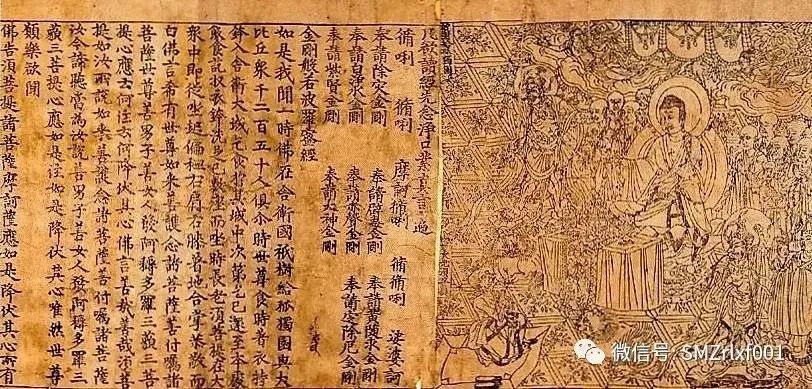 凡欲讀經先念淨口業真言一遍
脩唎 脩唎 摩訶脩唎 脩脩唎 娑婆訶
奉請除災金剛 奉請辟毒金剛 奉請黃隨求金剛
奉請白淨水金剛 奉請赤聲金剛 奉請定除厄金剛
奉請紫賢金剛 奉請大神金剛
金剛般若波羅蜜經
如是我聞一時佛在舍衛國祇樹給孤獨園與大
比丘眾千二百五十人俱尒時世尊食時著衣持
鉢入舍衛大城乞食於其城中次第乞已還至本處
飯食訖收衣鉢洗足已敷座而坐時長老須菩提在大
眾中即從坐起偏袒右肩右膝著地合掌恭敬而
白佛言希有世尊如來善護念諸菩薩善付囑諸
菩薩世尊善男子善女人發阿耨多羅三藐三菩
提心應云何住云何降伏其心佛言善哉善哉須菩
提如汝所說如來善護念諸菩薩善付囑諸菩薩
汝今諦聽當為汝說善男子善女人發阿耨多羅三
藐三菩提心應如是住如是降伏其心唯然世尊
願樂欲聞
佛告須菩提諸菩薩摩訶薩應如是降伏其心所有
微信号: SMZrlxf001